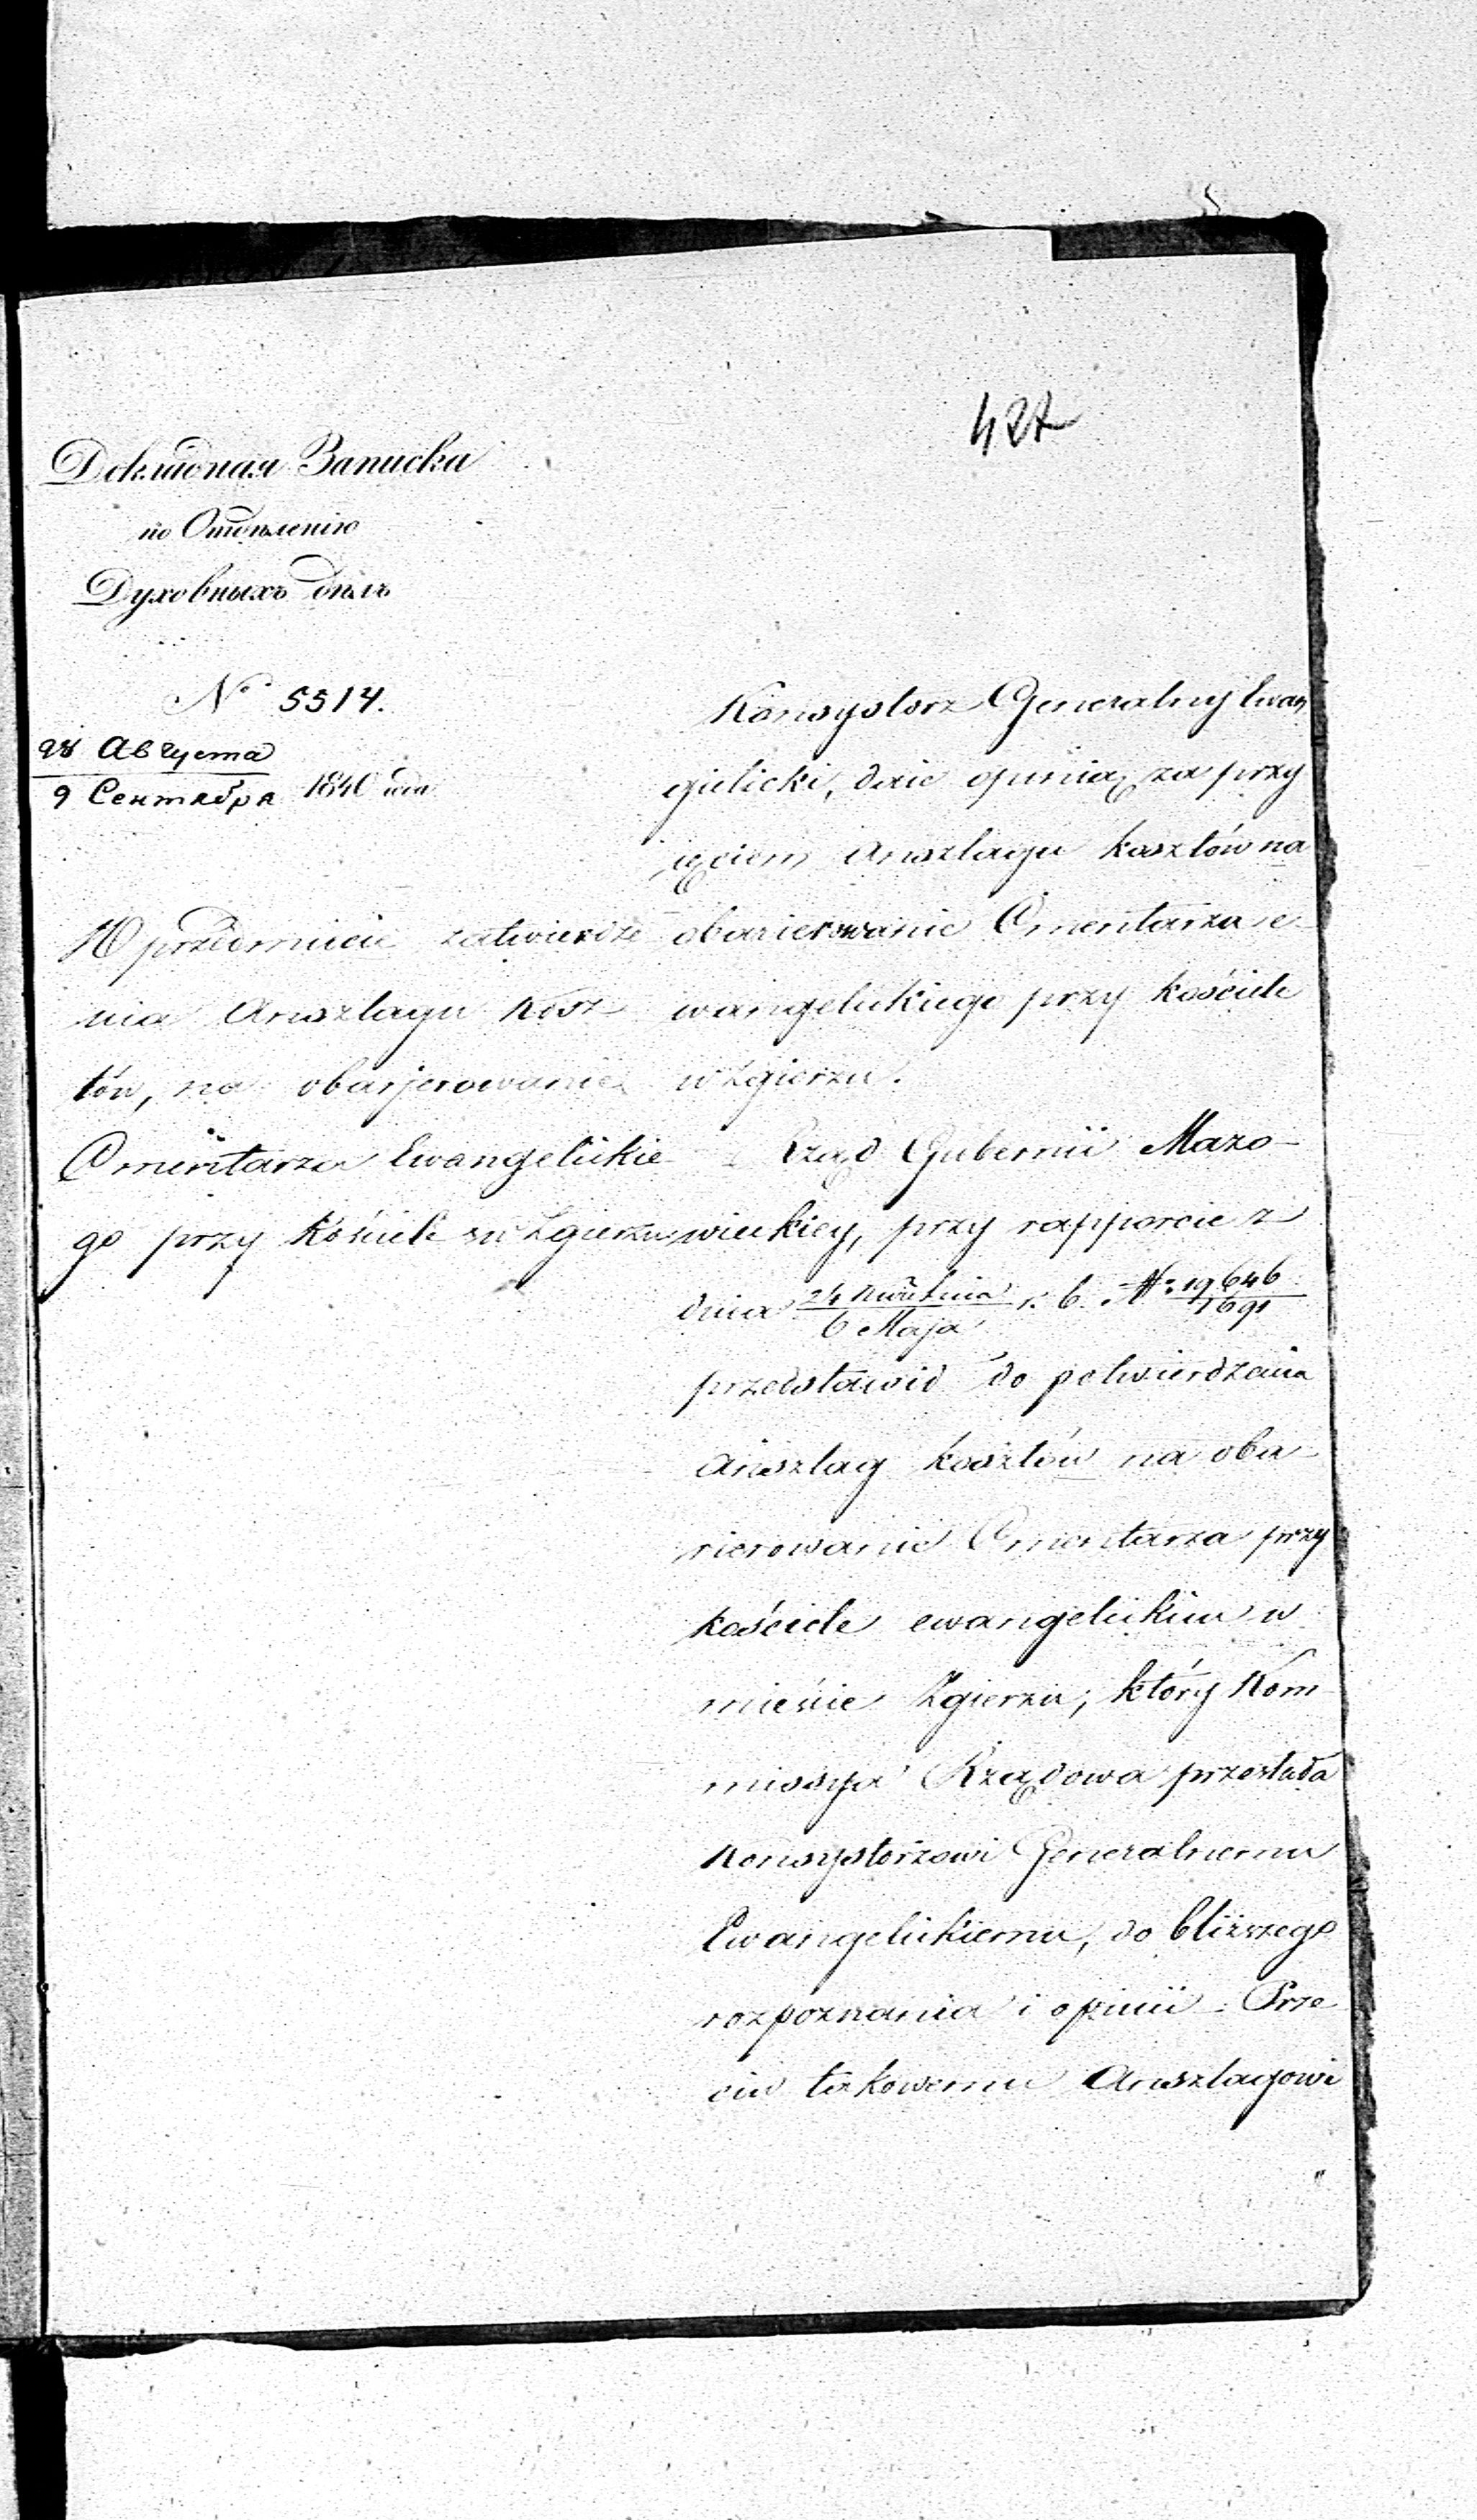 427
Докладная Записка
по Отдѣленію
Духовныхъ дѣлъ
№ 5514.
28 Августа
9 Сентября 1840 года
W przedmiocie zatwierdze
nia Anszlagu kosz-
tów, na obarjerowanie
Cmentarza Ewangelickie-
go przy kościele w Zgierzu
Konsystorz Generalny Ewan
gielicki, daie opinią za przy
ięciem Anszlagu kosztów na
obarierowanie Cmentarza e-
wangelickiego przy kościele
w Zgierzu.
Rząd Gubernii Mazo-
wieckiey, przy rapporcie z
dnia 24 Kwietnia / 6 Maja r. b. № 19646/1691
przedstawił do potwierdzenia
Anszlag kosztów na oba-
rierowanie Cmentarza przy
kościele ewangelickim w
mieście Zgierzu; który Kom-
missya Rządowa przesłała
Konsystorzowi Generalnemu
Ewangelickiemu, do bliższego
rozpoznania i opinii. Prze
ciw takowemu Anszlagowi